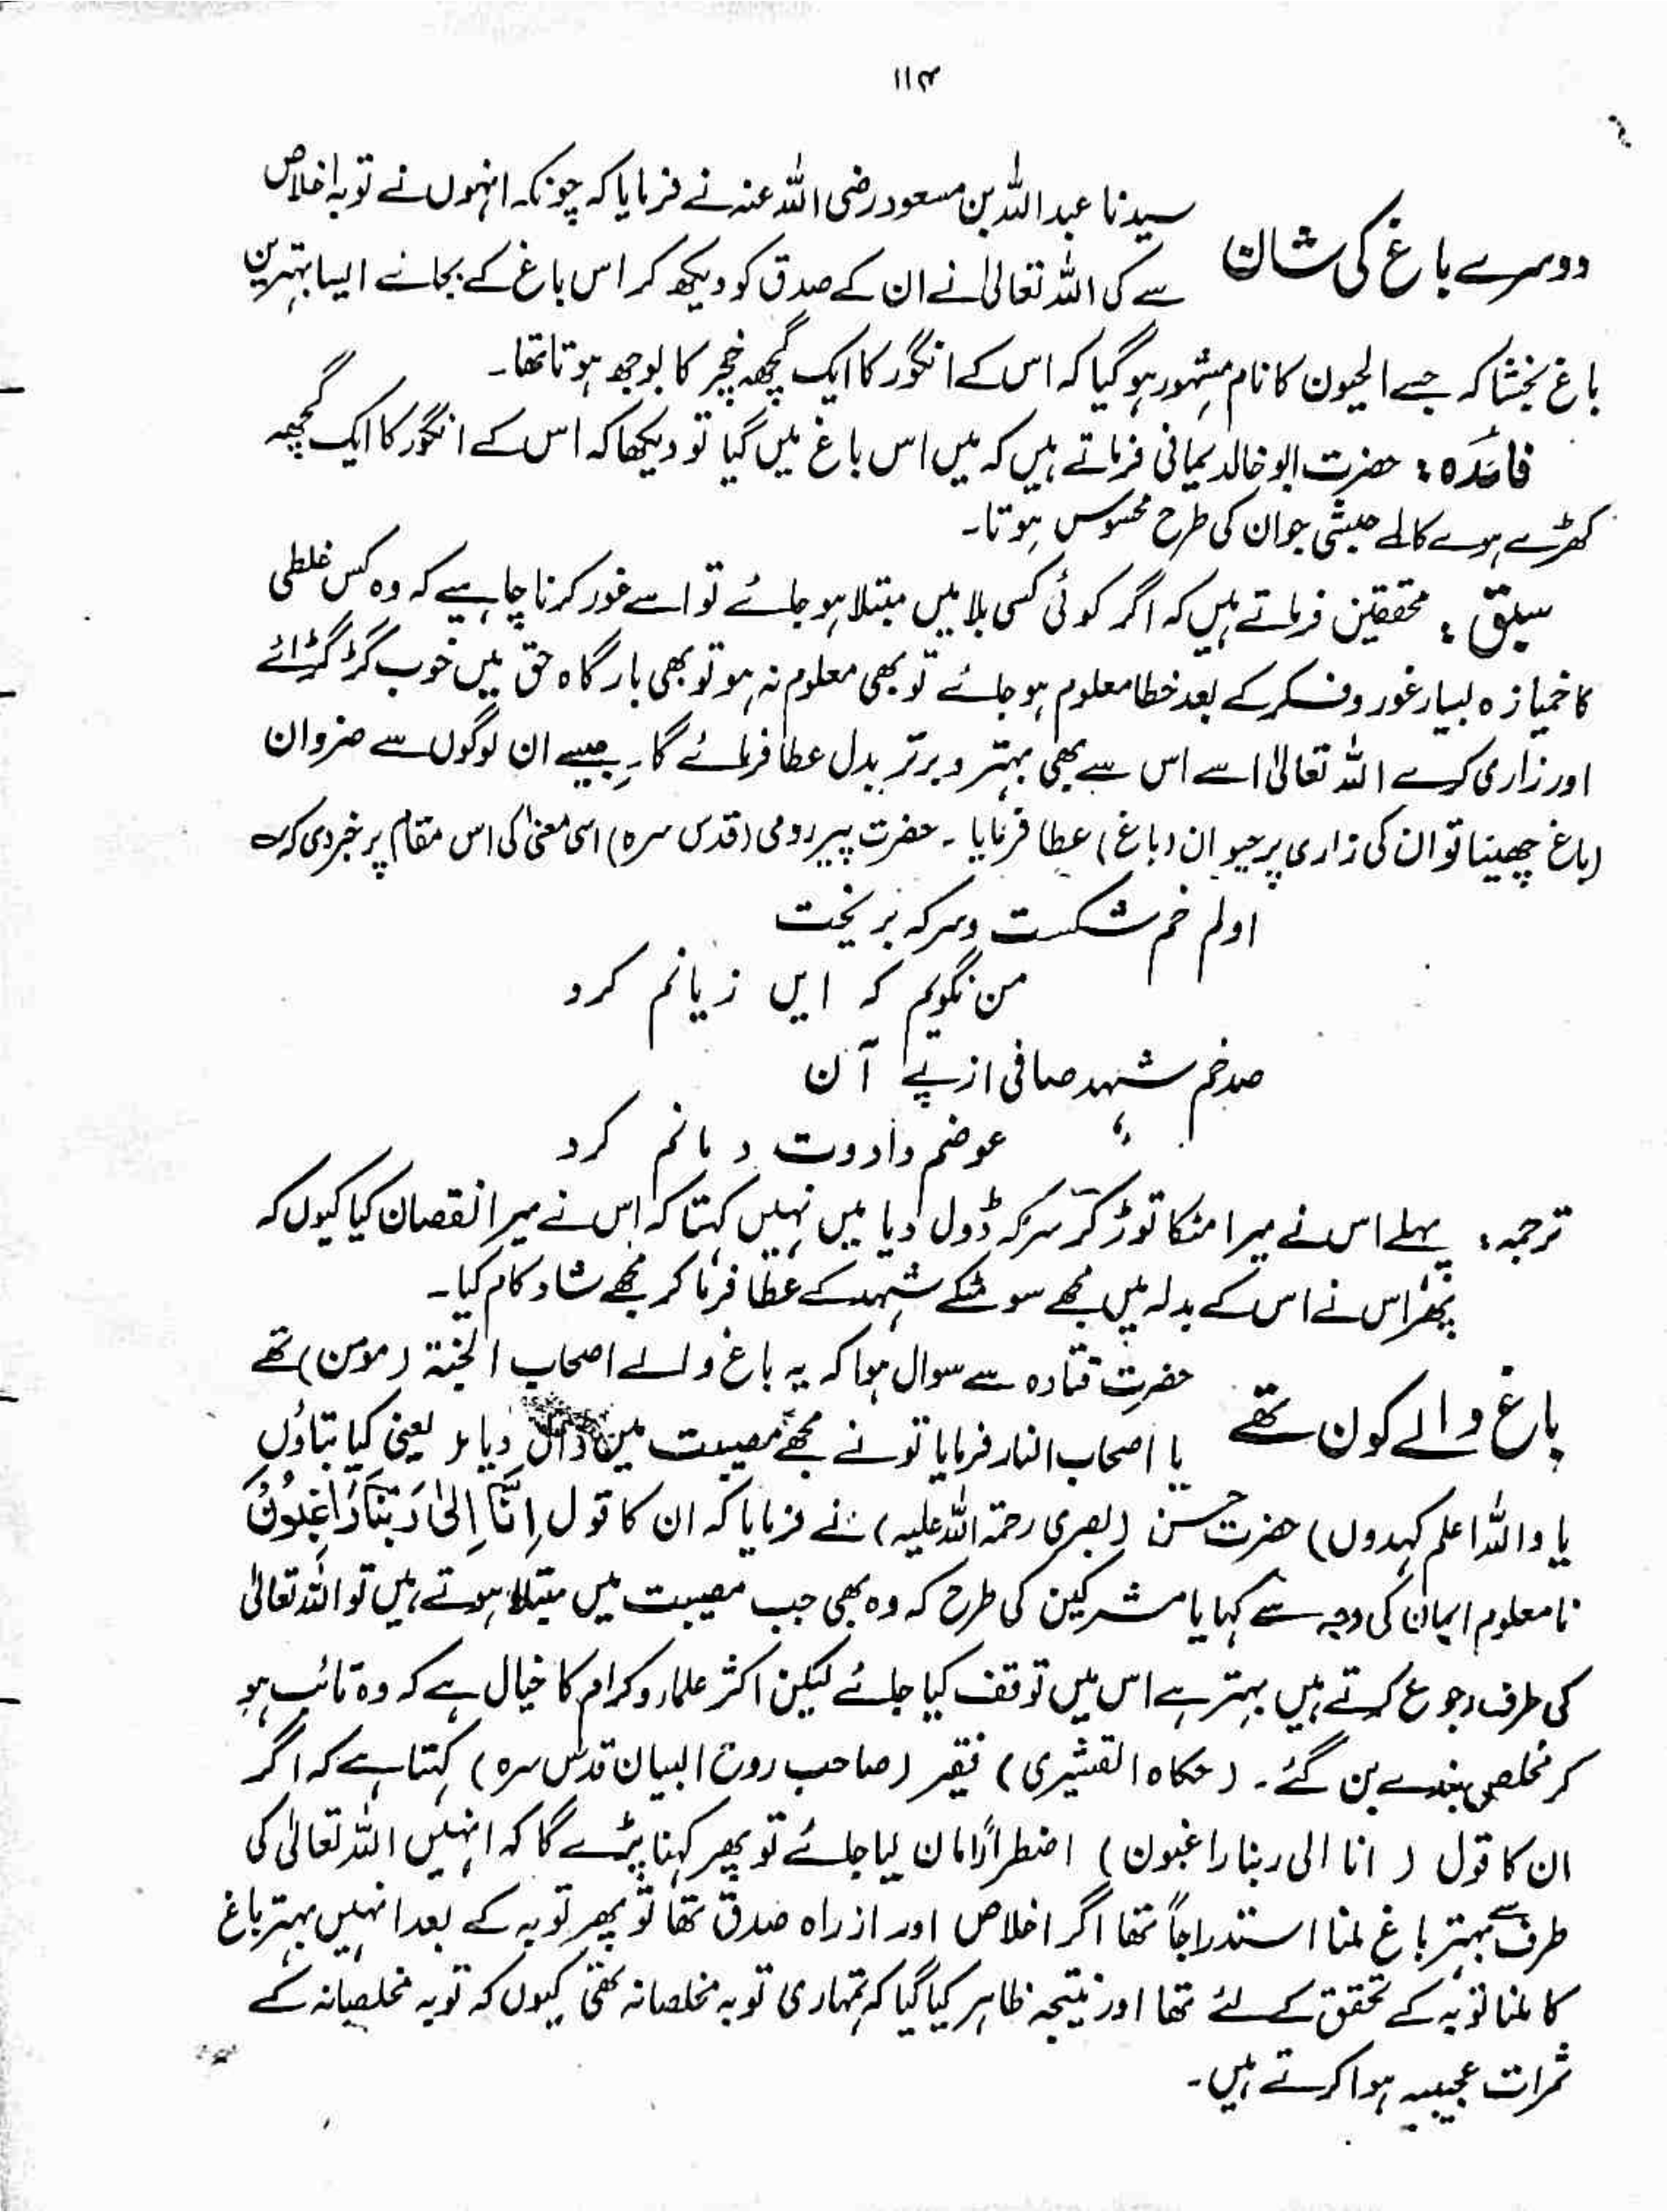 ۱۱۴
دوسرے باغ کی شان
سیدنا عبد اللہ بن مسعود رضی اللہ عنہ نے فرمایا کہ چونکہ انہوں نے توبہ اخلاص
سے کی اللہ تعالیٰ نے ان کے صدق کو دیکھ کر اس باغ کے بجائے ایسا بہترین
باغ بخشا کہ جسے الحیون کا نام مشہور ہو گیا کہ اس کے انگور کا ایک گچھہ خچر کا بوجھ ہوتا تھا۔
فائدہ : حضرت ابو خالد یمانی فرماتے ہیں کہ میں اس باغ میں گیا تو دیکھا کہ اس کے انگور کا ایک گچھہ
کھڑے ہوے کالے حبشی جوان کی طرح محسوس ہوتا۔
سبق : محققین فرماتے ہیں کہ اگر کوئی کسی بلا میں مبتلا ہو جائے تو اسے غور کرنا چاہیے کہ وہ کس غلطی
کا خمیازہ بسیار غور و فکر کے بعد خطا معلوم ہو جائے تو بھی معلوم نہ ہو تو بھی بارگاہ حق میں خوب گڑگڑائے
اور زاری کرے اللہ تعالیٰ اسے اس سے بھی بہتر و برتر بدل عطا فرمائے گا۔ جیسے ان لوگوں سے ضروان
(باغ چھینا تو ان کی زاری پر حیوان (باغ) عطا فرمایا۔ حضرت پیر رومی (قدس سرہ) اسی معنیٰ کی اس مقام پر خبر دی کہ
اولم خم شکست و سرکہ بریخت
من نگویم کہ ایں زیانم کرد
صد خم شہد صافی از پے آن
عوضم داد وت د مانم کرد
ترجمہ : پہلے اس نے میرا مٹکا توڑ کر سرکہ ڈول دیا میں نہیں کہتا کہ اس نے میرا نقصان کیا کیوں کہ
پھر اس نے اس کے بدلہ میں مجھے سو مٹکے شہد کے عطا فرما کر مجھے شاد کام کیا۔
باغ والے کون تھے
حضرت قتادہ سے سوال ہوا کہ یہ باغ والے اصحاب الجنۃ (مومن) تھے
یا اصحاب النار فرمایا تو نے مجھے مصیبت میں ڈال دیا یعنی کیا بتاؤں
یا واللہ اعلم کہدوں) حضرت حسن (بصری رحمۃ اللہ علیہ) نے فرمایا کہ ان کا قول اِنَّا اِلیٰ رَبِّنَا رَاغِبُوْنَ
نامعلوم ایمان کی وجہ سے کہا یا مشرکین کی طرح کہ وہ بھی جب مصیبت میں مبتلا ہوتے ہیں تو اللہ تعالیٰ
کی طرف رجوع کرتے ہیں بہتر ہے اس میں توقف کیا جائے لیکن اکثر علماء و کرام کا خیال ہے کہ وہ تائب ہو
کر مخلص بندے بن گئے۔ (حکاہ القشیری) فقیر (صاحب روح البیان قدس سرہ) کہتا ہے کہ اگر
ان کا قول (انا الی ربنا راغبون) اضطراراً مان لیا جائے تو پھر کہنا پڑے گا کہ انہیں اللہ تعالیٰ کی
طرف سے بہتر باغ ملنا استدراجاً تھا اگر اخلاص اور از راہ صدق تھا تو پھر توبہ کے بعد انہیں بہتر باغ
کا ملنا توبہ کے تحقق کے لئے تھا اور نتیجہ ظاہر کیا گیا کہ تمہاری توبہ مخلصانہ تھی کیوں کہ توبہ مخلصانہ کے
ثمرات عجیبیہ ہوا کرتے ہیں۔